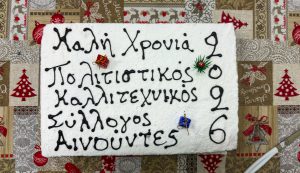 Καλή Χρονιά
Πολιτιστικός
Καλλιτεχνικός
Σύλλογος
Αινούντες
2026